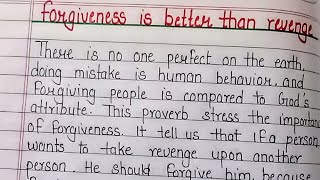 forgiveness is better than revenge
There is no one perfect on the earth.
doing mistake is human behavior. and
Forgiving people is compared to God's
attribute. This proverb stress the importan
of forgiveness. It tell us that if a person
wants to take revenge upon another
person. He should forgive him, because